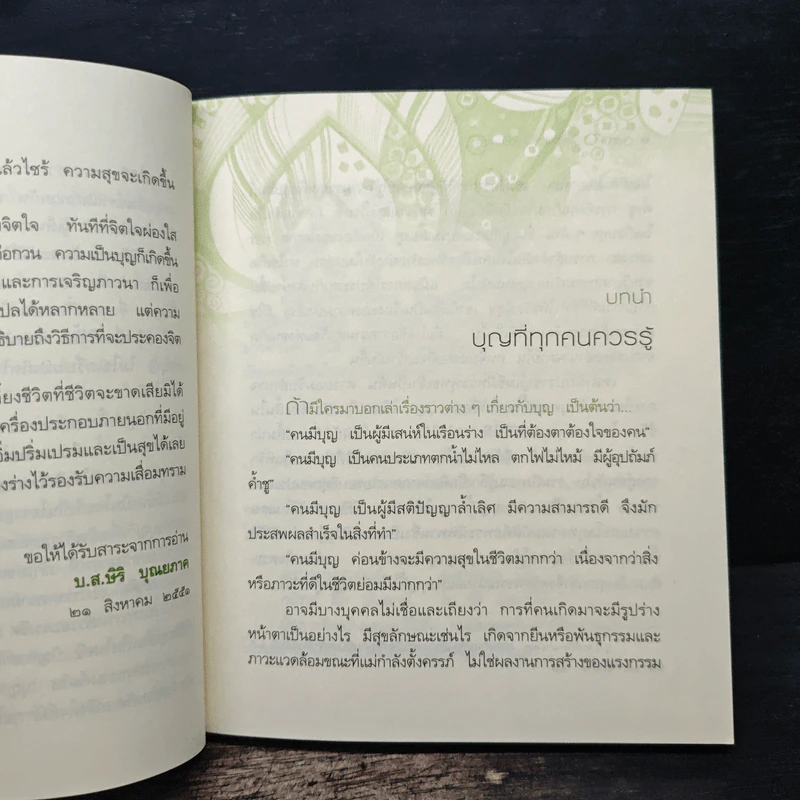 แล้วไซร้ ความสุขจะเกิดขึ้น
จิตใจ ทันทีที่จิตใจผ่องใส
กวน ความเป็นบุญก็เกิดขึ้น
และการเจริญภาวนา ก็เพื่อ
ปลได้หลากหลาย แต่ความ
ธิบายถึงวิธีการที่จะประคองจิต
ยงชีวิตที่ชีวิตจะขาดเสียมิได้
ครื่องประกอบภายนอกที่มีอยู่
อิ่มปริ่มเปรมและเป็นสุขได้เลย
งร่างไว้รองรับความเสื่อมทราม
ขอให้ได้รับสาระจากการอ่าน
บ.ส.ษิริ บุณยภาค
๒๑ สิงหาคม ๒๕๕๑
บทนำ
บุญที่ทุกคนควรรู้
ถ้ามีใครมาบอกเล่าเรื่องราวต่าง ๆ เกี่ยวกับบุญ เป็นต้นว่า...
“คนมีบุญ เป็นผู้มีเสน่ห์ในเรือนร่าง เป็นที่ต้องตาต้องใจของคน”
“คนมีบุญ เป็นคนประเภทตกน้ำไม่ไหล ตกไฟไม่ไหม้ มีผู้อุปถัมภ์
ค้ำชู”
“คนมีบุญ เป็นผู้มีสติปัญญาล้ำเลิศ มีความสามารถดี จึงมัก
ประสพผลสำเร็จในสิ่งที่ทำ”
“คนมีบุญ ค่อนข้างจะมีความสุขในชีวิตมากกว่า เนื่องจากว่าสิ่ง
หรือภาวะที่ดีในชีวิตย่อมมีมากกว่า”
อาจมีบางบุคคลไม่เชื่อและเถียงว่า การที่คนเกิดมาจะมีรูปร่าง
หน้าตาเป็นอย่างไร มีสุขลักษณะเช่นไร เกิดจากยีนหรือพันธุกรรมและ
ภาวะแวดล้อมขณะที่แม่กำลังตั้งครรภ์ ไม่ใช่ผลงานการสร้างของแรงกรรม